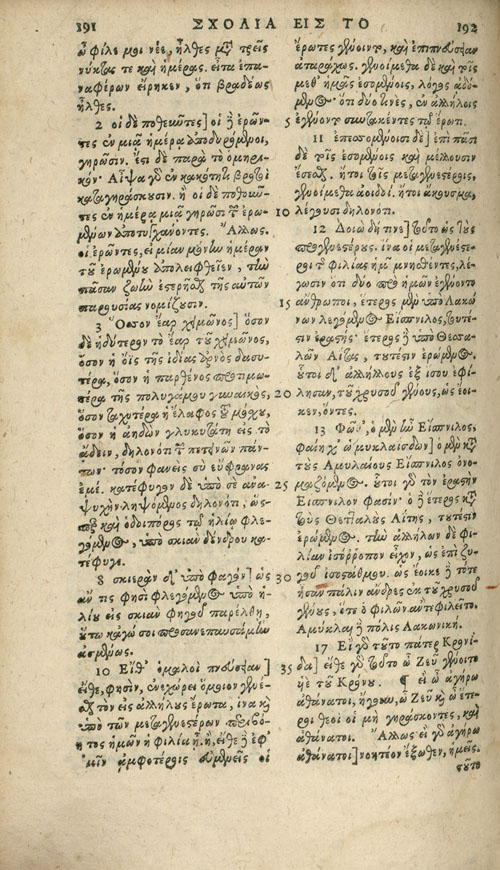 191 ΣΧΟΛΙΑ ΕΙΣ ΤΟ 192
ὦ φίλε μοι νέε, ἦλθες μετὰ τρεῖς
νύκτας τε καὶ ἡμέρας. εἶτα ἐπα-
ναφέρων εἴρηκεν, ὅτι βραδέως
ἦλθες.
2 οἱ δὲ ποθεῦντες] οἱ δὲ ἐρῶν-
τες ἐν μιᾷ ἡμέρᾳ ἀποδυρόμενοι,
γηρῶσιν. ἔστι δὲ παρὰ τὸ ὁμηρι-
κόν· Αἶψα γὰρ ἐν κακότητι βροτοὶ
καταγηράσκουσιν. ἢ οἱ δὲ ποθοῦν-
τες ἐν ἡμέρᾳ μιᾷ γηρῶσι τῶν ἐρω-
μένων ἀποτυγχάνοντες. Ἄλλως.
οἱ ἐρῶντες, εἰ μίαν μόνην ἡμέραν
τοῦ ἐρωμένου ἀπολειφθεῖεν, τὴν
πᾶσαν ζωὴν ἐστερῆσθαι τῆς αὐτῶν
παρουσίας νομίζουσιν.
3 Ὅσσον ἔαρ χειμῶνος] ὅσον
δὲ ἡδύτερον τὸ ἔαρ τοῦ χειμῶνος,
ὅσον ἡ ὄϊς τῆς ἰδίας ἀρνὸς δασυ-
τέρα, ὅσον ἡ παρθένος προτιμω-
τέρα τῆς πολυγάμου γυναικὸς,
ὅσον ταχυτέρα ἡ ἔλαφος τοῦ μόσχου,
ὅσον ἡ ἀηδὼν γλυκυτάτη εἰς τὸ
ᾄδειν, δηλονότι τῶν πετεινῶν πάν-
των· τόσον φανεὶς σὺ εὔφρανας
ἐμέ. κατέφυγον δὲ ὑπὸ σὲ ἀνα-
ψυχὴν ληψόμενος δηλονότι, ὥς-
περ καὶ ὁδοιπόρος τῷ ἡλίῳ φλε-
γόμενος, ὑπὸ σκιὰν δένδρου κα-
τέφυγε.
8 σκιερὰν δ' ὑπὸ φαγὸν] ὡς
ἄν τις φησὶ φλεγόμενος ὑπὸ ἡ-
λίου εἰς σκιὰν φηγοῦ παρέλθῃ,
οὕτω κἀγώ σοι προσανεπαυσάμην
ἄσμενος.
10 Εἴθ' ὁμαλοὶ πνεύσειαν]
εἴθε, φησὶν, συνεχώρει ὅμοιον γενέ-
σθαι τὸν εἰς ἀλλήλους ἔρωτα, ἵνα καὶ
ὑπὸ τῶν μεταγενεστέρων περιβό-
ητος ἡμῶν ἡ φιλία ᾖ. ἢ, εἴθε δὲ ἐφ'
ἡμῖν ἀμφοτέροις σύμμετροι οἱ
ἔρωτες γένοιντο, καὶ ἐπιπνεύσειαν
ἀταράχως. γενοίμεθα δὲ καὶ τοῖς
μεθ' ἡμᾶς ἐσομένοις, λόγος ᾀδό-
μενος· ὅτι δύο τινὲς, ἐν ἀλλήλοις
5 ἐγένοντο συντακέντες τῷ ἔρωτι.
11 ἐπεσσομένοισι δὲ] ἐπὶ πᾶσι
δὲ τοῖς ἐσομένοις καὶ μέλλουσιν
ἔσεσθαι. ἤτοι τοῖς μεταγενεστέροις,
γενοίμεθα ἀοιδοί. ἤτοι ἄκουσμα,
10 λέγουσι δηλονότι.
12 Δοιὼ δή τινε] τοῦτο ὡς πρὸς τοὺς
προγενεστέρους. ἵνα οἱ μεταγενέστε-
ροι τῆς φιλίας ἡμῶν μνησθέντες, λέ-
γωσιν ὅτι δύο πρὸ ἡμῶν ἐγένοντο
15 ἄνθρωποι, ἕτερος μὲν ὑπὸ Λακώ-
νων λεγόμενος Εἴσπνιλος, τουτέ-
σιν ἐραστής· ἕτερος δὲ ὑπὸ Θεσσα-
λῶν Αἴτας, τουτέσιν ἐρώμενος.
οὗτοι δ' ἀλλήλους ἐξ ἴσου ἐφί-
20 λησαν, τοῦ χρυσοῦ γένους, ὡς ἔοι-
κεν, ὄντες.
13 Φῶθ', ὁ μὲν ὧν Εἴσπνιλος,
φαίη χ' ὡμυκλαϊσδων] ὁ μὲν κατὰ
τοὺς Ἀμυλαίους Εἴσπνιλος ὀνο-
25 μαζόμενος. οὗτοι γὰρ τὸν ἐραστὴν
Εἴσπνιλον φασίν. ὁ δὲ ἕτερος κατὰ
τοὺς Θετταλοὺς Αἴτης, τουτέσιν
ἐρώμενος. τὴν ἀλλήλων δὲ φι-
λίαν ἰσόρροπον εἶχον, ὡς ἐπὶ ζυ-
30 γοῦ ἰσοστάθμου. ὡς ἔοικε δὲ τότε
ἦσαν πάλιν ἄνδρες ἐκ τοῦ χρυσοῦ
γένους, ὅτε ὁ φιλῶν ἀντεφιλεῖτο.
Ἀμύκλαι δὲ πόλις Λακωνική.
17 Εἰ γὰρ τοῦτο πάτερ Κρονί-
35 δα] εἴθε γὰρ τοῦτο ὦ Ζεῦ γένοιτο
υἱὲ τοῦ Κρόνου. ¶ εἰ ὦ ἀγήρω
ἀθάνατοι, ἤγουν, ὦ Ζεῦ καὶ ὦ ἕτε-
ροι θεοὶ οἱ μὴ γηράσκοντες, καὶ
ἀθάνατοι. Ἄλλως εἰ γὰρ ἀγήρω
ἀθάνατοι] νοητέον ἔξωθεν, ἡμεῖς.
τοῦτο